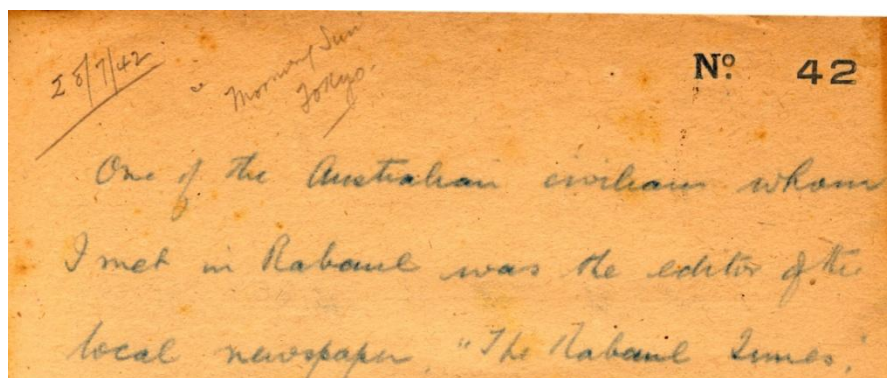 28/7/42
Morning Sun
Tokyo.
No. 42
One of the Australian civilians whom
I met in Rabaul was the editor of the
local newspaper, "The Rabaul Times,"